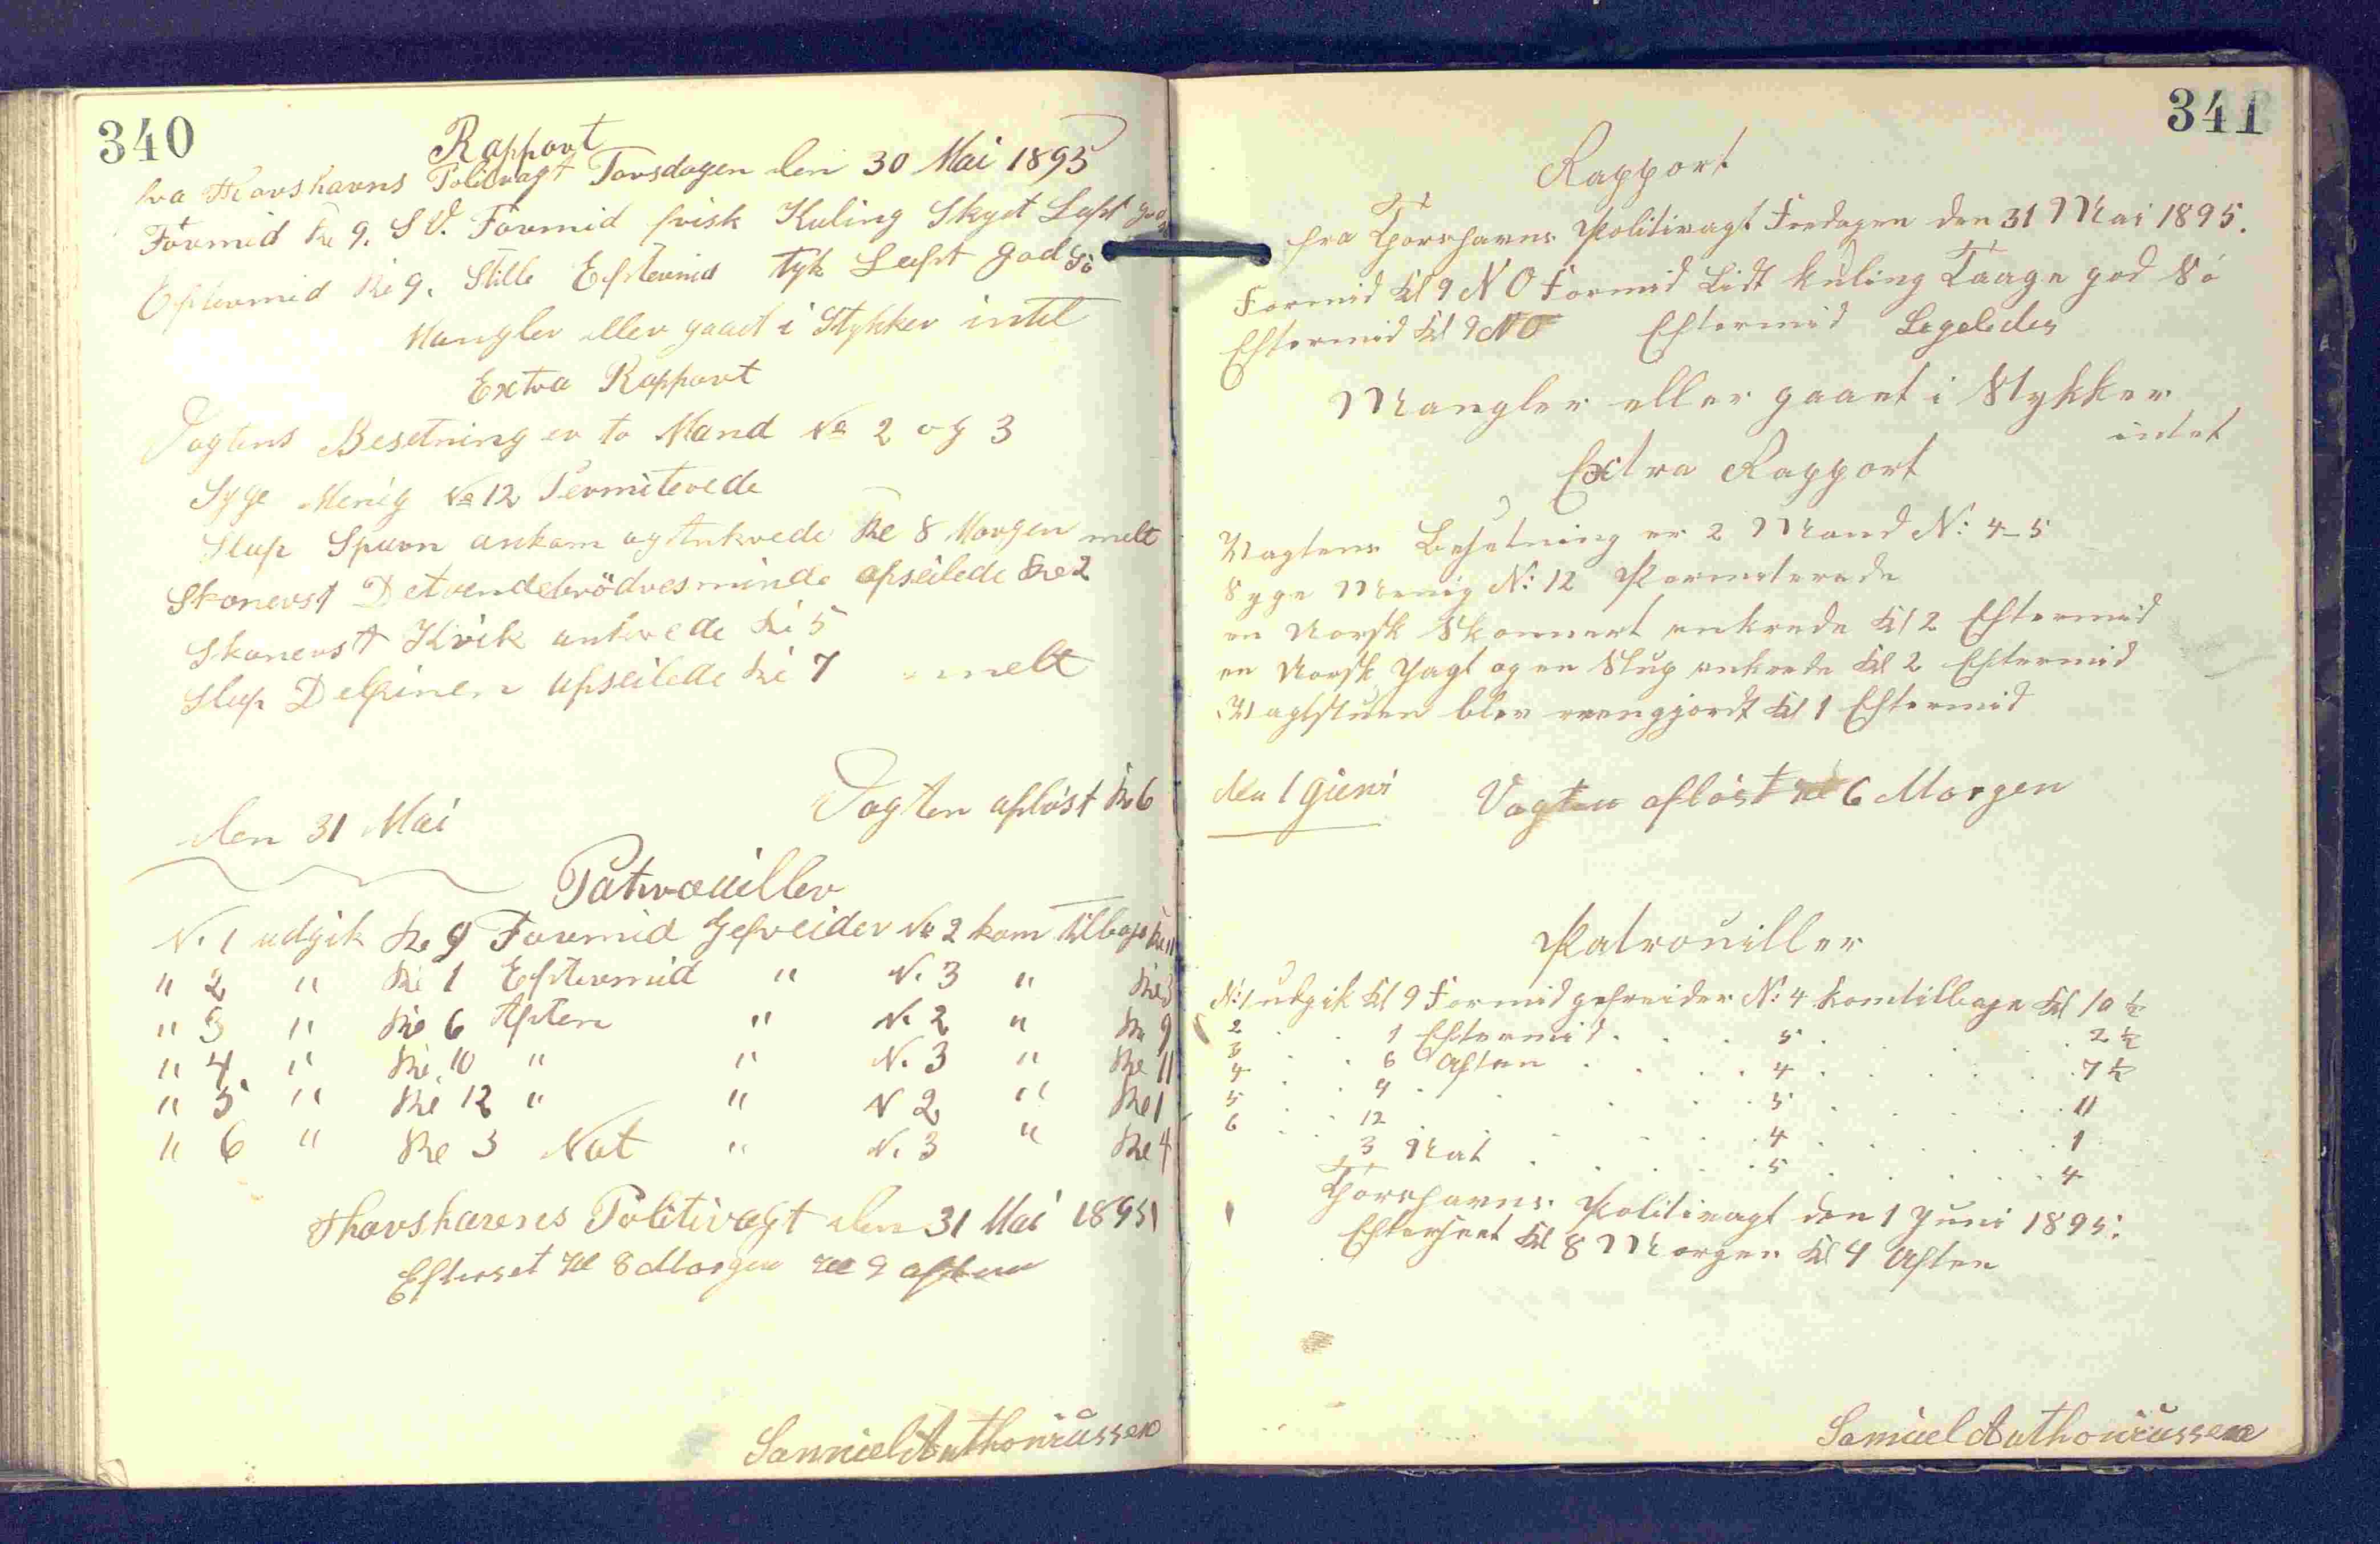 340
Rapport
fra Thorshavns Politivagt Torsdagen den 30 Mai 1895
Formid Kl 9. S V. Formid frisk Kuling Skyet Luft god
Eftermid Kl 9. Stille Eftermid tyk Luft god Sö
Mangler eller gaaet i Stykker intet
Extra Rapport
Vagtens Besetning er to Mand No 2 og 3
Syge Menig No 12 Permiterede
Slup Spurn ankom og Ankrede Kl 8 Morgen melt
Skonerst Detvendebrödresminde afseilede Kl 2
Skonerst Kvik ankrede Kl 5
Slup Delfinen afseilede Kl 7 melt
Vagten aflöst Kl 6
den 31 Mai
Patrouiller
N. 1 udgik Kl 9 Formid Gefreider No 2 kom tilbage Kl 11
" 2 " Kl 1 Eftermid " N. 3 " Kl 3
" 3 " Kl 6 Aften " N. 2 " Kl 9
" 4 " Kl 10 " " N. 3 " Kl 11
" 5 " Kl 12 " " N 2 " Kl 1
" 6 " Kl 3 Nat " N. 3 " Kl 4
Thorshavns Politivagt den 31 Mai 1895
Efterset Kl 8 Morgen Kl 9 aften
Samuel Anthoniussen
341
Rapport
fra Thorshavns Politivagt Fredagen den 31 Mai 1895.
Formid Kl 9 N O Formid Lidt kuling Taage god Sö
Eftermid Kl 9 NO Eftermid Legeledes
Mangler eller gaaet i Stykker
intet
Extra Rapport
Vagtens Besetning er 2 Mand N: 4-5
Syge Menig N: 12 Permiterede
en Norsk Skonnert ankrede Kl 2 Eftermid
en Norsk Jagt og en Slup ankrede Kl 2 Eftermid
Vagtstuen blev reengjordt Kl 1 Eftermid
den 1 Juni Vagten aflöst Kl 6 Morgen
Patrouiller
N: 1 udgik Kl 9 Formid gefreider N: 4 kom tilbage Kl 10 ½
2 . . 1 Eftermid . . . 5 . . . 2 ½
3 . . 6 Aften . . . 4 . . . 7 ½
4 . . 9 . . . 5 . . . 11
5 . . 12 . . . 4 . . . 1
6 . . 3 Nat . . . 5 . . . 4
Thorshavns Politivagt den 1 Juni 1895.
Efterseet Kl 8 Morgen Kl 9 Aften
Samuel Anthoniussen